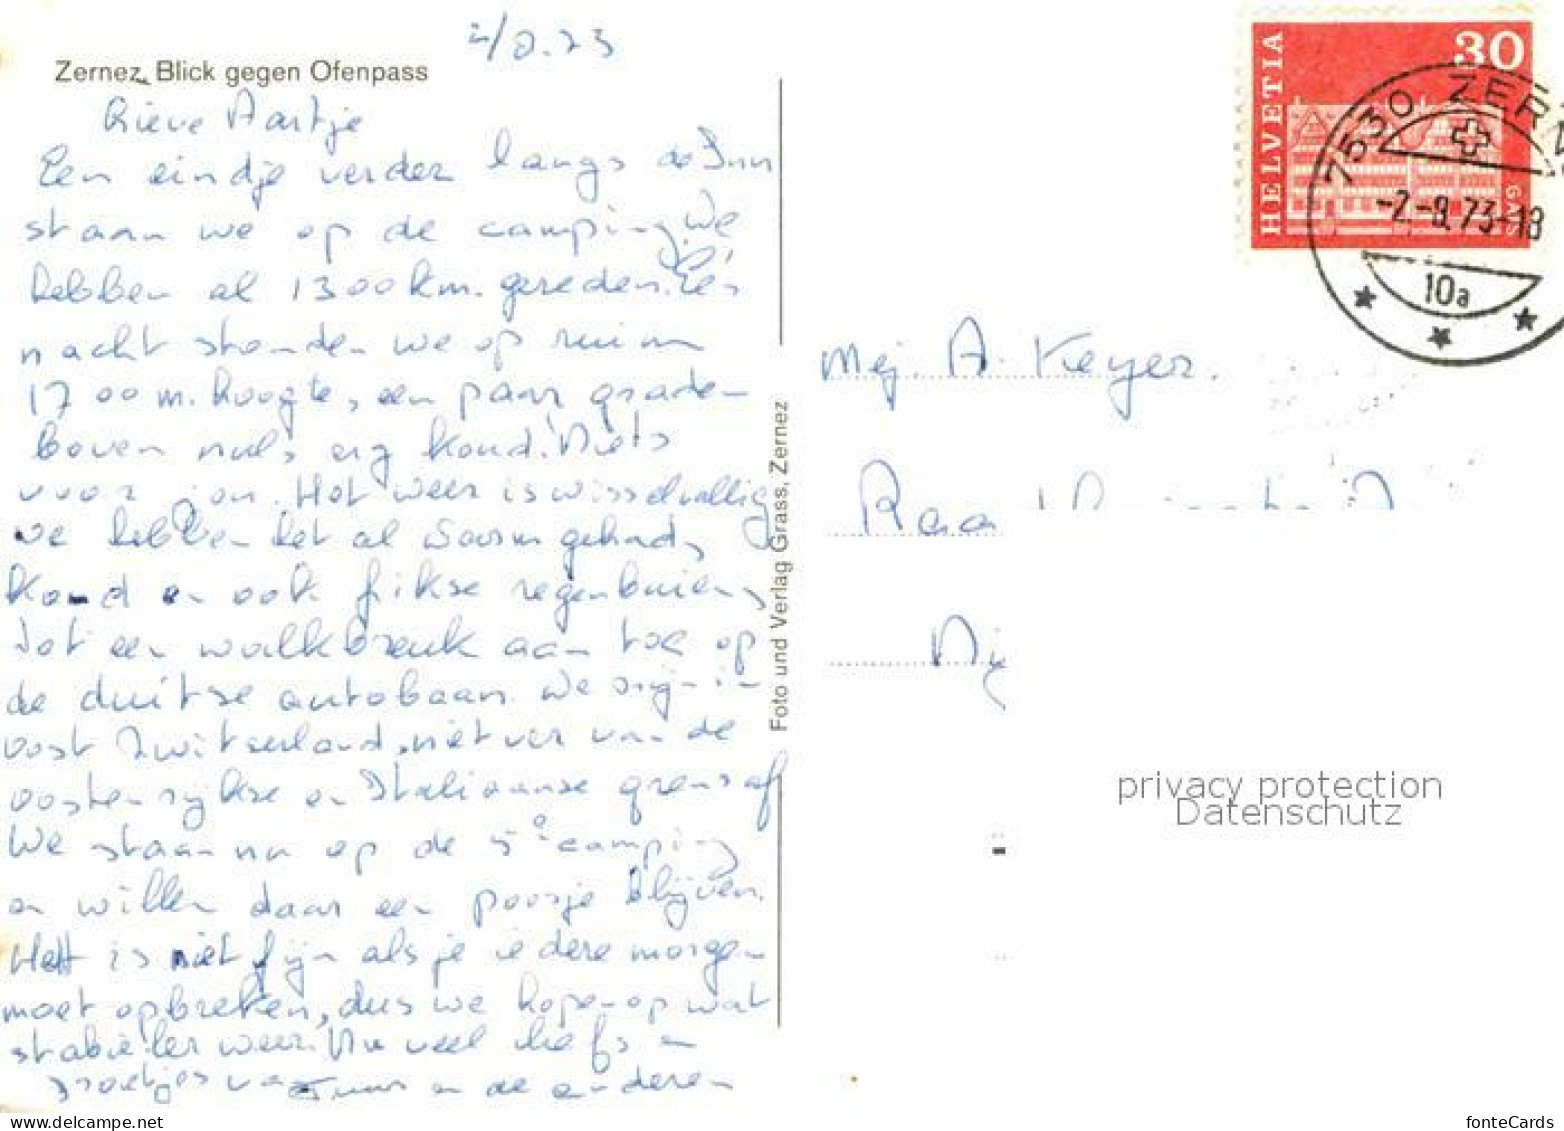 2/9.73
Zernez, Blick gegen Ofenpass
Lieve Aartje
Een eindje verder langs de Inn
staan we op de camping. We
hebben al 1300 km. gereden. Eén
nacht stonden we op ruim
1700 m. hoogte, een paar graden
boven nul, erg koud! Niets
voor jou. Het weer is wisselvallig
we hebben het al warm gehad,
koud en ook fikse regenbuien,
tot een wolkbreuk aan toe op
de duitse autobaan. We zijn in
oost Zwitserland, niet ver van de
oostenrijkse en Italiaanse grens af
We staan nu op de 5e camping
en willen daar een poosje blijven.
Het is niet fijn als je iedere morgen
moet opbreken, dus we hopen op wat
stabieler weer. Nu veel liefs en
groetjes van en de anderen
Foto und Verlag Grass, Zernez
HELVETIA
30
7530 ZERN
-2.-9.73-18
10a
Mej. A. Keyer.
privacy protection
Datenschutz
delcampe.net
fonteCards